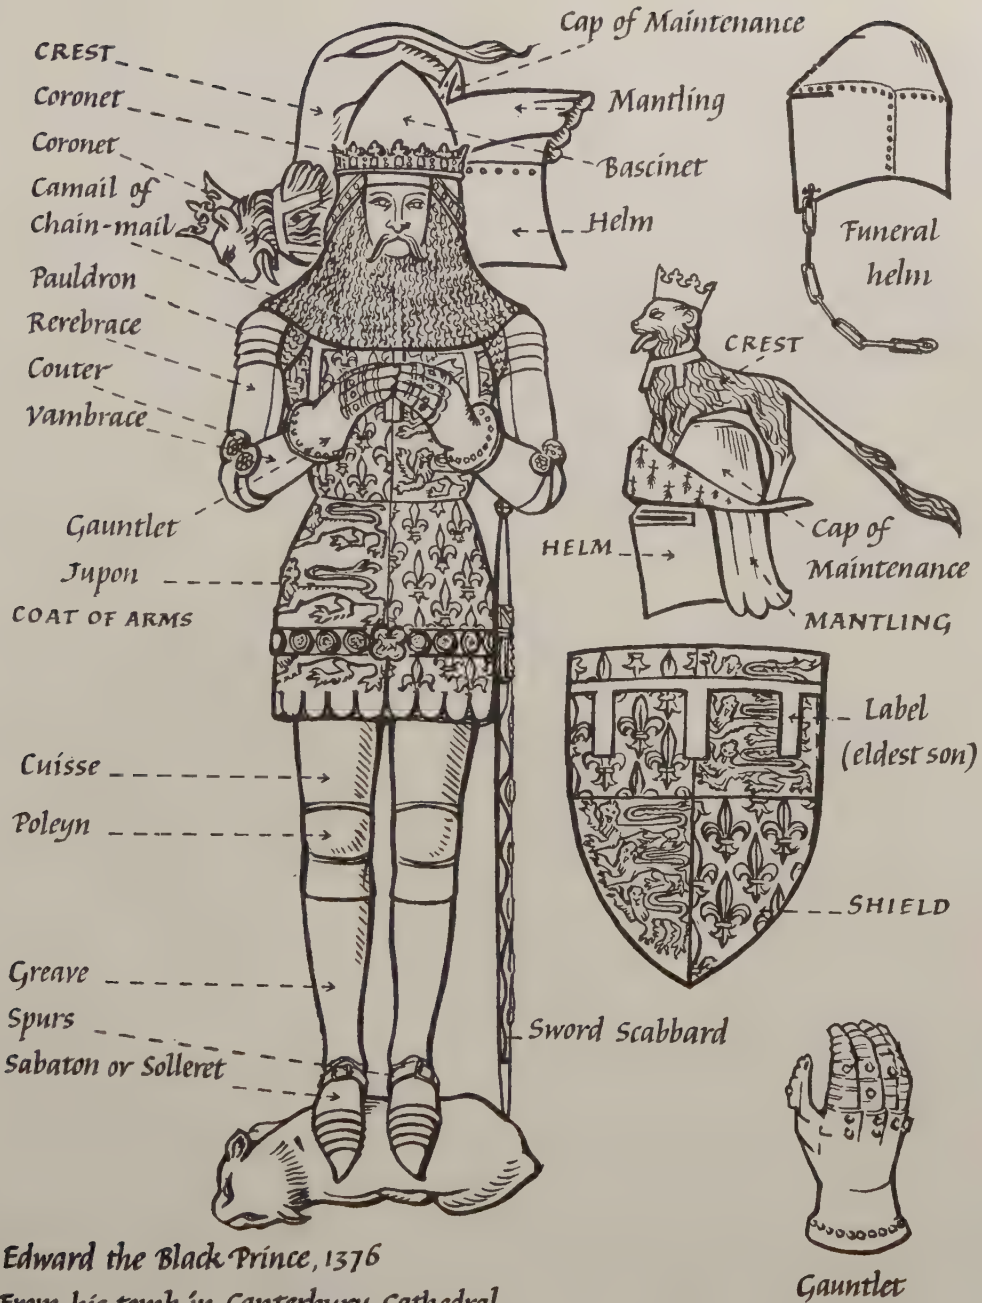 CREST
Coronet
Coronet
Camail of
Chain-mail
Pauldron
Rerebrace
Couter
Vambrace
Gauntlet
Jupon
COAT OF ARMS
Cuisse
Poleyn
Greave
Spurs
Sabaton or Solleret
Cap of Maintenance
Mantling
Bascinet
Helm
Funeral
helm
CREST
HELM
Cap of
Maintenance
MANTLING
Label
(eldest son)
SHIELD
Sword Scabbard
Gauntlet
Edward the Black Prince, 1376
From his tomb in Canterbury Cathedral